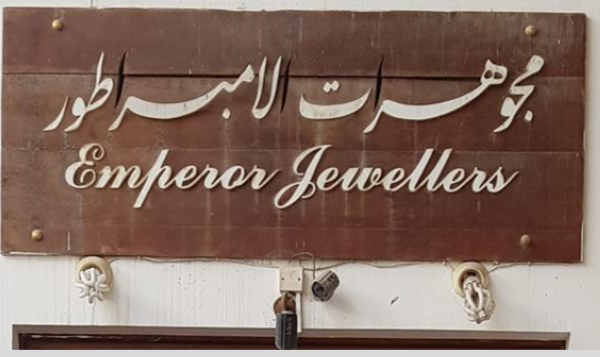 مجوهرات الامبراطور
Emperor Jewellers